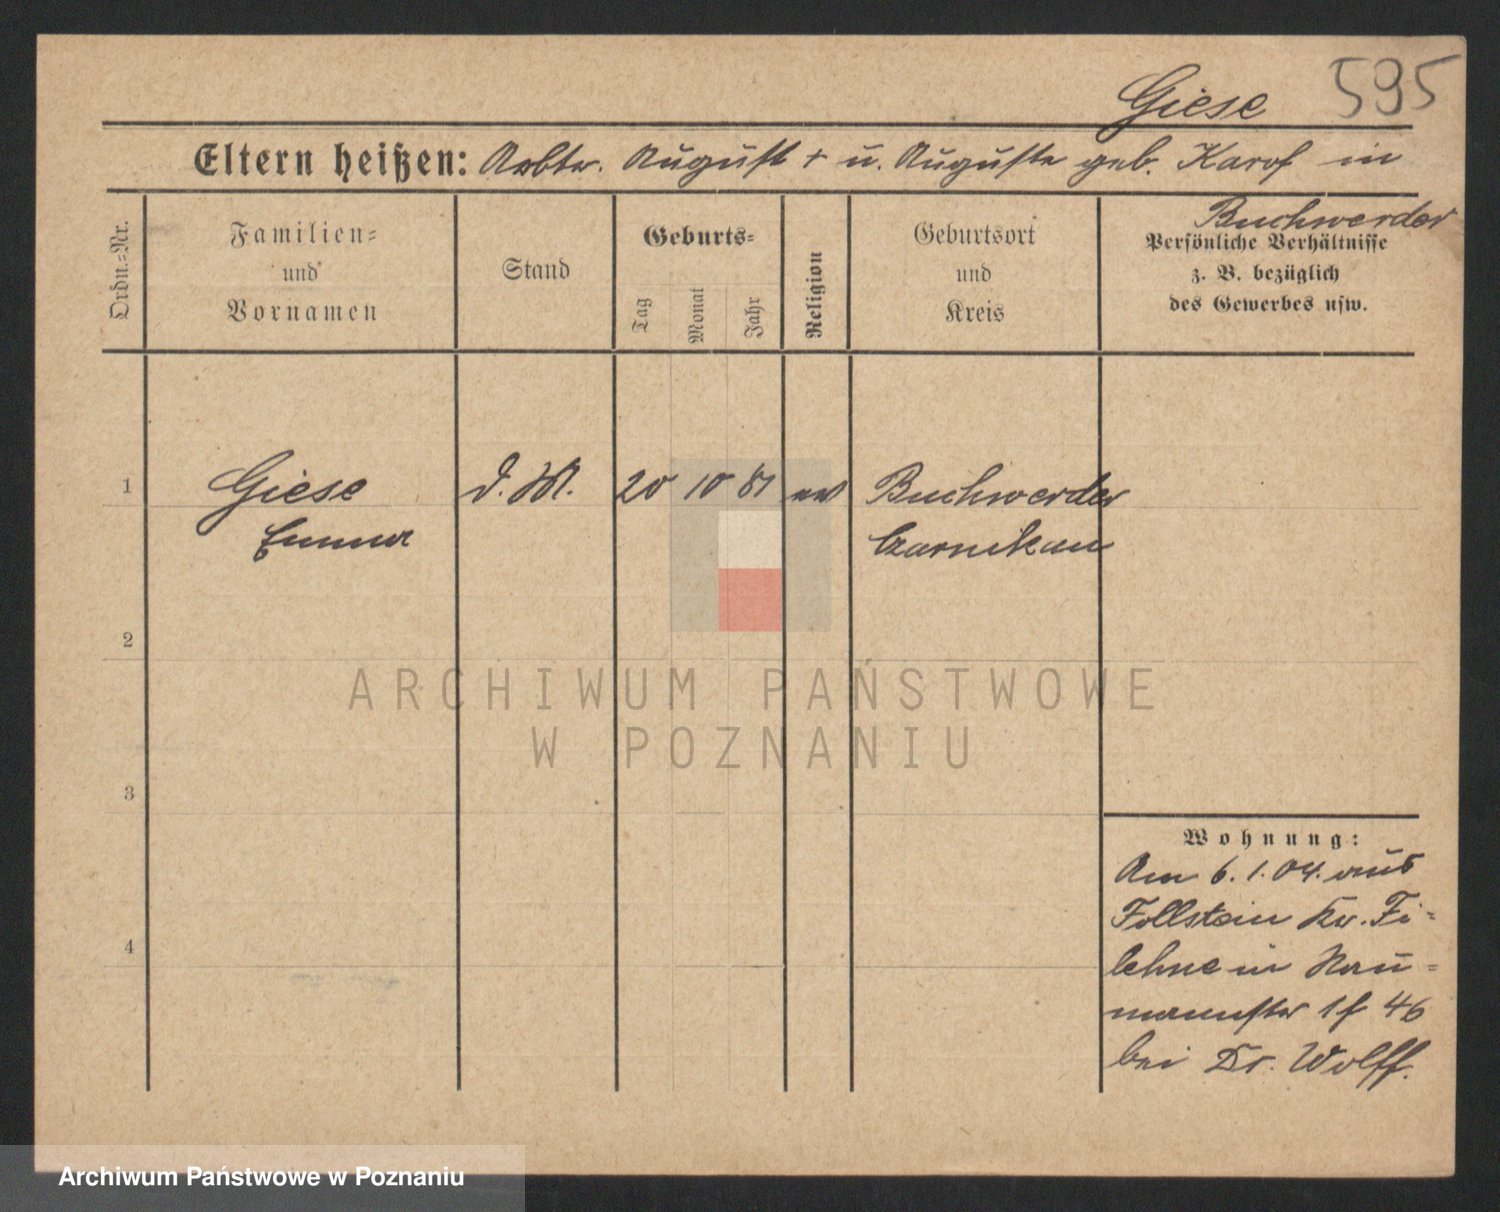 Giese 595
Eltern heißen: Arbtr. August + u. Auguste geb. Karof in
Buchwerder
Ordn.-Nr.
Familien-
und
Vornamen
Stand
Geburts-
Tag
Monat
Jahr
Religion
Geburtsort
und
Kreis
Persönliche Verhältnisse
z. B. bezüglich
des Gewerbes usw.
1 Giese d. M. 20 10 81 ev Buchwerder
Emma Czarnikau
2
3
4
Wohnung:
Am 6. 1. 04. aus
Follstein Kr. Fi-
lehne in Nau-
mannstr 1 f 46
bei Dr. Wolff.
ARCHIWUM PAŃSTWOWE
W POZNANIU
Archiwum Państwowe w Poznaniu